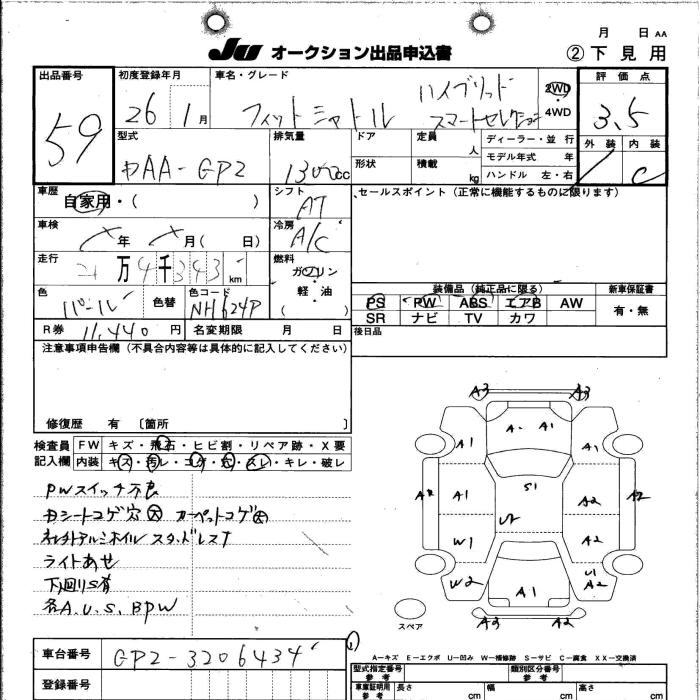 月 日 AA
JU オークション出品申込書 ②下見用
出品番号 59
初度登録年月 26 1月
車名・グレード フィットシャトル ハイブリッド スマートセレクション
2WD
4WD
評価点 3.5
外装 内装 C
型式 DAA-GP2
排気量 1300cc
ドア
形状
定員 人
積載 kg
ディーラー・並行
モデル年式 年
ハンドル 左・右
車歴 自家用・( )
シフト AT
セールスポイント(正常に機能するものに限ります)
車検 年 月( 日)
冷房 A/C
走行 21万4千343km
燃料 ガソリン・軽・油 ( )
色 パール 色替
色コード NH624P
装備品(純正品に限る) 新車保証書
PS PW ABS エアB AW 有・無
SR ナビ TV カワ
R券 11,440円 名変期限 月 日 後日品
注意事項申告欄(不具合内容等は具体的に記入してください)
修復歴 有 〔箇所 〕
検査員 FW キズ・飛石・ヒビ割・リペア跡・X要
記入欄 内装 キズ・汚レ・コゲ・穴・スレ・キレ・破レ
PWスイッチ不良
ライトあせ
下廻りS有
各A.U.S.BPW
A3 A3
A1 A1 A1
A1 S1 A2 A2
W1 A2
W2 A1 U1 A2
A3 A2
スペア
A-キズ E-エクボ U-凹み W-補修跡 S-サビ C-腐食 XX-交換済
車台番号 GP2-3206434
登録番号
型式指定番号 参考 類別区分番号 参考
車庫証明用 参考 長さ cm 幅 cm 高さ cm